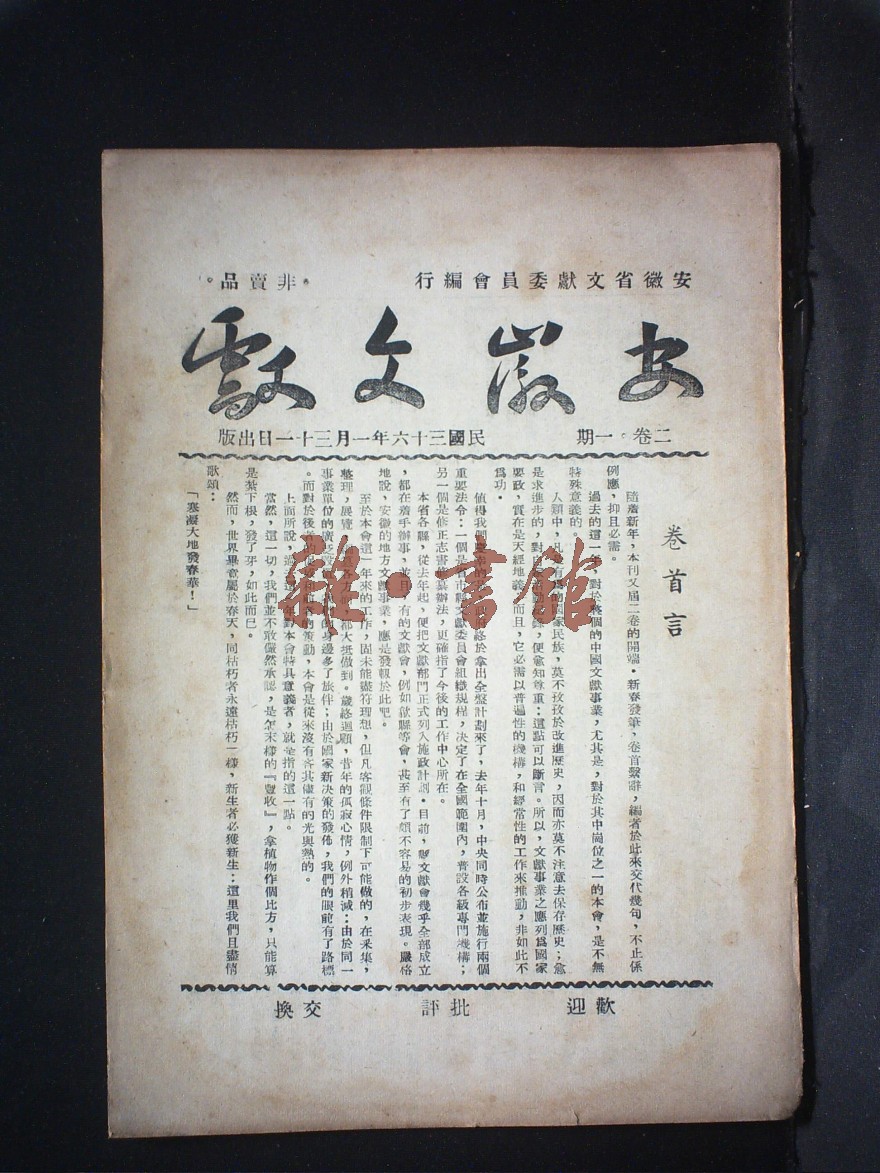 安徽省文獻委員會編行
非賣品。
安徽文獻
二卷。一期
民國三十六年一月三十一日出版
卷首言
隨着新年,本刊又屆二卷的開端。新春發筆,卷首綴辭,編者於此來交代幾句,不止係
例應,抑且必需。
過去的這一年,對於整個的中國文獻事業,尤其是,對於其中崗位之一的本會,是不無
特殊意義的
人類中,凡是有 的國家民族,莫不孜孜於改進歷史,因而亦莫不注意去保存歷史;愈
是求進步的,對 錄,便愈知尊重:這點可以斷言。所以,文獻事業之應列爲國家
要政,實在是天經地義 而且,它必需以普遍性的機構,和經常性的工作來推動,非如此不
爲功。
值得我們 的 終於拿出全盤計劃來了,去年十月,中央同時公布並施行兩個
重要法令:一個是省市縣文獻委員會組織規程,決定了在全國範圍內,普設各級專門機構;
另一個是修正志書 纂辦法,更確指了今後的工作中心所在。
本省各縣,從去年起,便把文獻部門正式列入施政計劃。目前,縣文獻會幾乎全部成立
,都在着手辦事,並且 有的文獻會,例如歙縣等會,甚至有了頗不容易的初步表現。嚴格
地說,安徽的地方文獻事業,應是發軔於此吧。
至於本會這一年來的工作,固未能盡符理想,但凡客觀條件限制下可能做的,在釆集,
整理,展覽, 方面,都大抵做到。歲終迴顧,昔年的孤寂心情,例外稍減:由於同一
事業單位的廣泛設 的身邊多了旅伴;由於國家新決策的發佈,我們的眼前有了路標
。而對於後 的策動,本會是從來沒有吝其僅有的光與熱的。
上面所說,過去這一年對本會特具意義者,就是指的這一點。
當然,這一切,我們並不敢儼然承認,是怎末樣的『豐收』,拿植物作個比方,只能算
是紮下根,發了芽,如此而已。
然而,世界畢竟屬於春天,同枯朽者永遠枯朽一樣,新生者必獲新生;這里我們且盡情
歌頌:
「寒凝大地發春華!」
歡迎 批評 交換
雜·書館